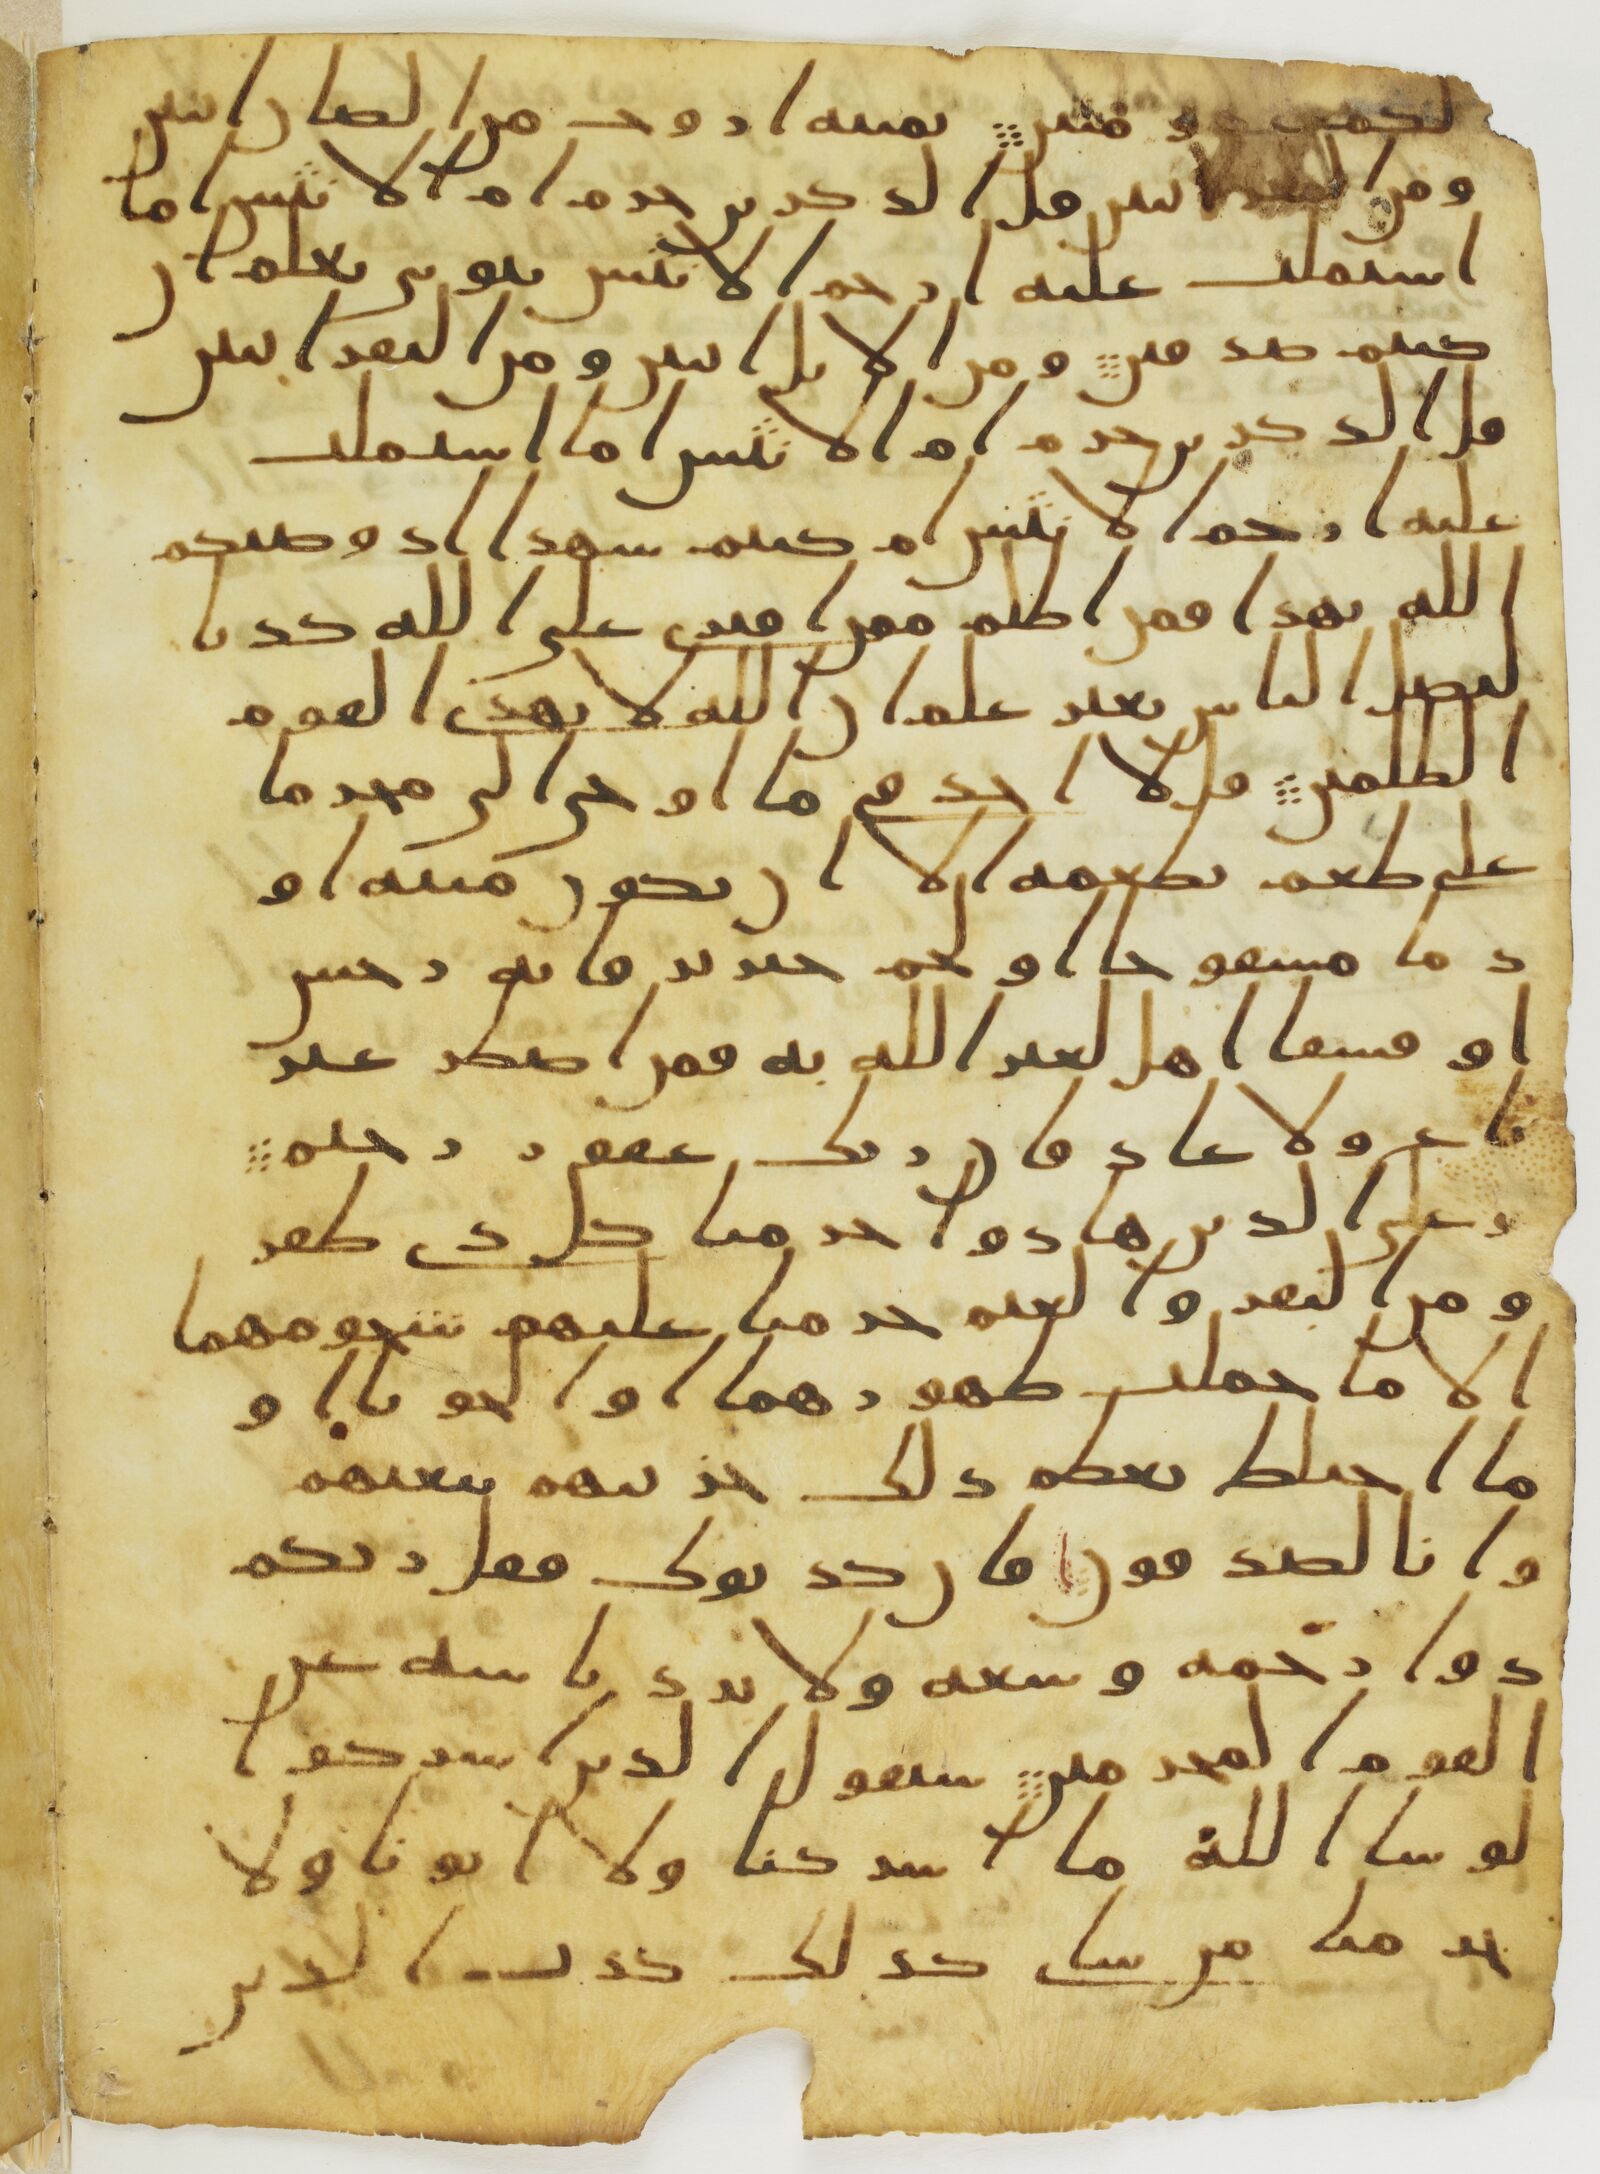 لكم عدو مبين ثمنيه ازوج من الضان اثنين
ومن المعز اثنين قل الذكرين حرم ام الانثيين اما
اشتملت عليه ارحم الانثيين نبوني بعلم ان
كنتم صدقين ومن الابل اثنين ومن البقر اثنين
قل الذكرين حرم ام الانثيين اما اشتملت
عليه ارحم الانثيين ام كنتم شهدا اذ وصيكم
الله بهذا فمن اظلم ممن افترى على الله كذبا
ليضل الناس بغير علم ان الله لا يهدى القوم
الظلمين قل لا اجد فى ما اوحى الى محرما
على طعم يطعمه الا ان يكون ميته او
دما مسفوحا او لحم خنزير فانه رجس
او فسقا اهل لغير الله به فمن اضطر غير
باغ ولا عاد فان ربك غفور رحيم
وعلى الذين هادوا حرمنا كل ذى ظفر
ومن البقر والغنم حرمنا عليهم شحومهما
الا ما حملت ظهورهما او الحوايا او
ما اختلط بعظم ذلك جزينهم ببغيهم
وانا لصدقون فان كذبوك فقل ربكم
ذوا رحمه وسعه ولا يرد باسه عن
القوم المجرمين سيقول الذين اشركوا
لو شا الله ما اشركنا ولا ابونا ولا
حرمنا من شاى كذلك كذب الذين